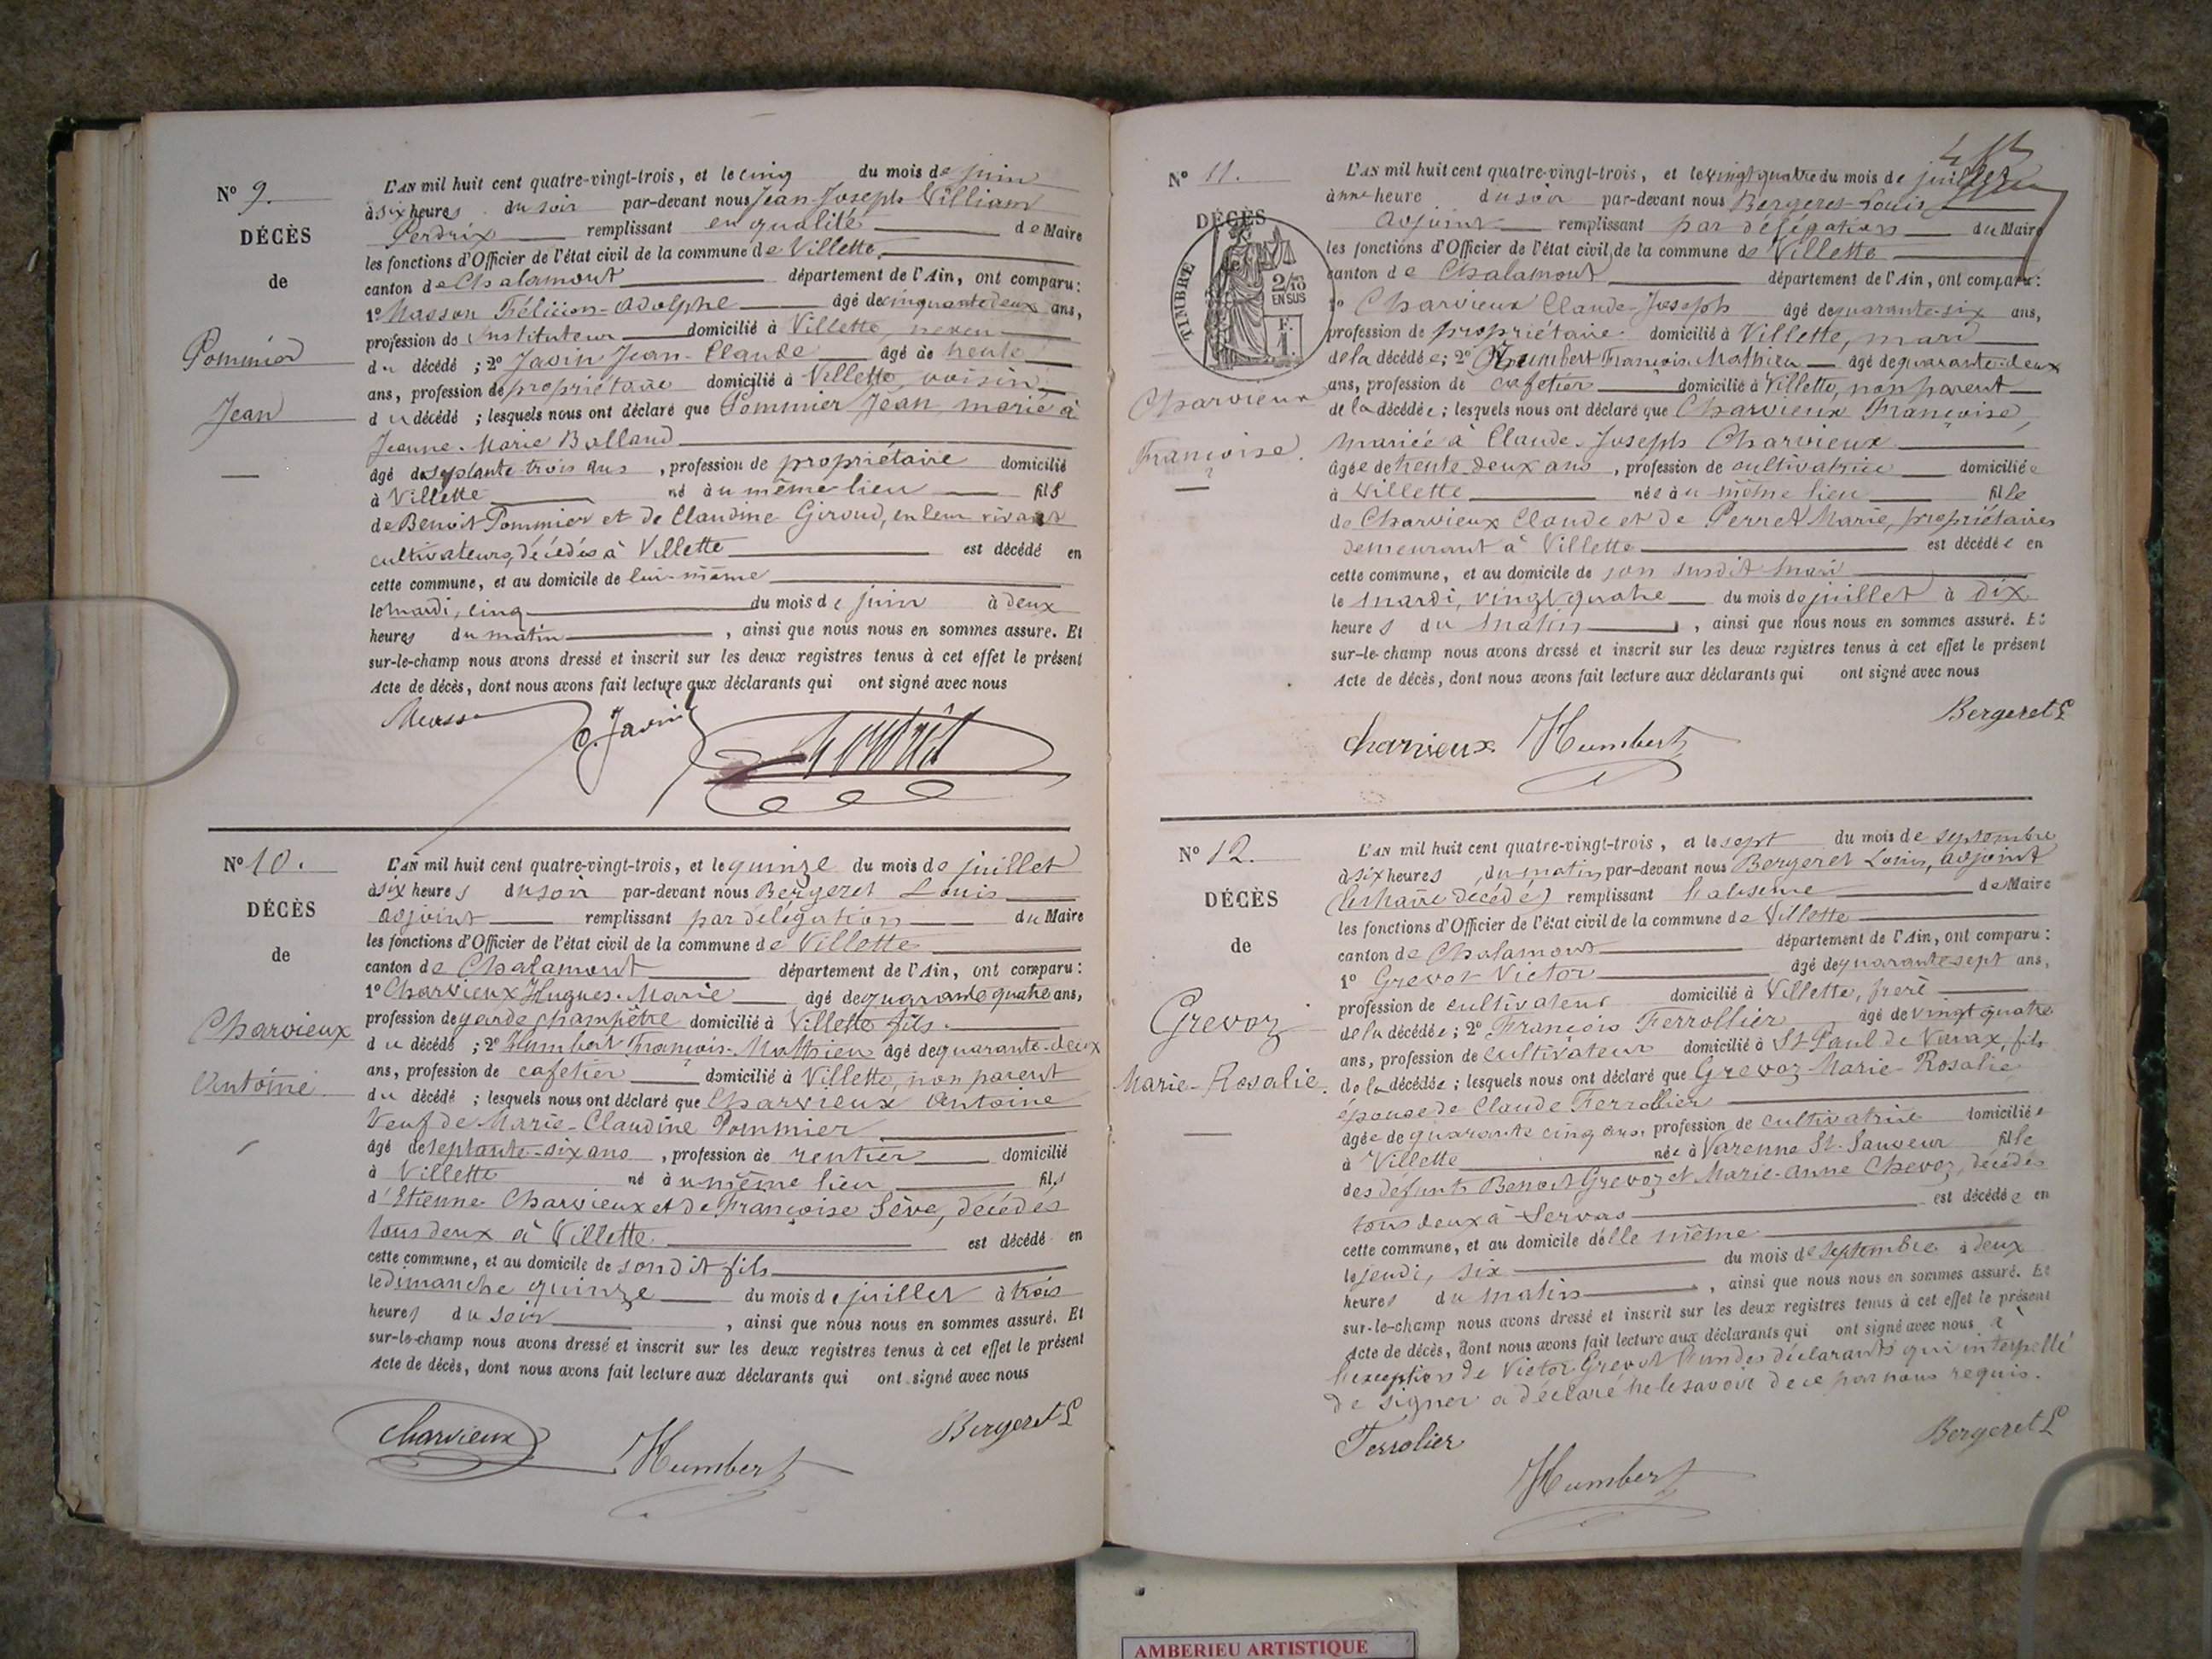 N° 9.
DÉCÈS
de
Pommier
Jean
L'AN mil huit cent quatre-vingt-trois, et le cinq du mois de juin
à six heures du soir par-devant nous Jean-Joseph Villiam
Perdrix remplissant en qualité de Maire
les fonctions d'Officier de l'état civil de la commune de Villette
canton de Chalamont département de l'Ain, ont comparu:
1° Masson Félicien-Adolphe âgé de cinquante deux ans,
profession de Instituteur domicilié à Villette, neveu
du décédé ; 2° Javin Jean-Claude âgé de trente
ans, profession de propriétaire domicilié à Villette, voisin
du décédé ; lesquels nous ont déclaré que Pommier Jean, marié à
Jeanne-Marie Balland
âgé de septante trois ans, profession de propriétaire domicilié
à Villette né à u même lieu fils
de Benoit Pommier et de Claudine Giroud, en leur vivant
cultivateurs, décédés à Villette est décédé en
cette commune, et au domicile de lui-même
le mardi, cinq du mois de juin à deux
heures du matin, ainsi que nous nous en sommes assuré. Et
sur-le-champ nous avons dressé et inscrit sur les deux registres tenus à cet effet le présent
Acte de décès, dont nous avons fait lecture aux déclarants qui ont signé avec nous
Masson C. Javin Perdrix
N° 10.
DÉCÈS
de
Charvieux
Antoine
L'AN mil huit cent quatre-vingt-trois, et le quinze du mois de juillet
à six heures du soir par-devant nous Bergeret Louis
adjoint remplissant par délégation du Maire
les fonctions d'Officier de l'état civil de la commune de Villette
canton de Chalamont département de l'Ain, ont comparu:
1° Charvieux Hugues-Marie âgé de quarante quatre ans,
profession de garde champêtre domicilié à Villette fils
du décédé ; 2° Humbert François-Mathieu âgé de quarante-deux
ans, profession de cafetier domicilié à Villette, non parent
du décédé ; lesquels nous ont déclaré que Charvieux Antoine
Veuf de Marie-Claudine Pommier
âgé de septante-six ans, profession de rentier domicilié
à Villette né à u même lieu fils
d'Etienne Charvieux et de Françoise Sève, décédés
tous deux à Villette est décédé en
cette commune, et au domicile de son dit fils
le dimanche quinze du mois de juillet à trois
heures du soir, ainsi que nous nous en sommes assuré. Et
sur-le-champ nous avons dressé et inscrit sur les deux registres tenus à cet effet le présent
Acte de décès, dont nous avons fait lecture aux déclarants qui ont signé avec nous
Charvieux Humbert Bergeret L
N° 11.
DÉCÈS
TIMBRE
2/10
EN SUS
F.
1
Charvieux
Françoise.
L'AN mil huit cent quatre-vingt-trois, et le vingt quatre du mois de juillet
à une heure du soir par-devant nous Bergeret Louis
adjoint remplissant par délégation du Maire
les fonctions d'Officier de l'état civil de la commune de Villette
canton de Chalamont département de l'Ain, ont comparu:
1° Charvieux Claude-Joseph âgé de quarante-six ans,
profession de propriétaire domicilié à Villette, mari
de la décédée ; 2° Humbert François-Mathieu âgé de quarante-deux
ans, profession de cafetier domicilié à Villette, non parent
de la décédée ; lesquels nous ont déclaré que Charvieux Françoise,
mariée à Claude-Joseph Charvieux
âgée de trente-deux ans, profession de cultivatrice domiciliée
à Villette née à u même lieu fille
de Charvieux Claude et de Perret Marie, propriétaires
demeurant à Villette est décédée en
cette commune, et au domicile de son susdit mari
le mardi, vingt quatre du mois de juillet à dix
heures du matin, ainsi que nous nous en sommes assuré. Et
sur-le-champ nous avons dressé et inscrit sur les deux registres tenus à cet effet le présent
Acte de décès, dont nous avons fait lecture aux déclarants qui ont signé avec nous
Charvieux Humbert Bergeret L
N° 12.
DÉCÈS
de
Grevoz
Marie-Rosalie.
L'AN mil huit cent quatre-vingt-trois, et le sept du mois de septembre
à six heures du matin, par-devant nous Bergeret Louis, adjoint
(le Maire décédé) remplissant de Maire
les fonctions d'Officier de l'état civil de la commune de Villette
canton de Chalamont département de l'Ain, ont comparu:
1° Grevot Victor âgé de quarante sept ans,
profession de cultivateur domicilié à Villette, frère
de la décédée ; 2° François Ferrollier âgé de vingt quatre
ans, profession de cultivateur domicilié à St Paul de Varax, fils
de la décédée ; lesquels nous ont déclaré que Grevoz Marie-Rosalie
épouse de Claude Ferrollier
âgée de quarante cinq ans, profession de cultivatrice domiciliée
à Villette née à Varenne St-Sauveur fille
des défunts Benoit Grevoz et Marie-Anne Chevoz, décédés
tous deux à Servas est décédée en
cette commune, et au domicile d'elle même
le jeudi, six du mois de septembre à deux
heures du matin, ainsi que nous nous en sommes assuré. Et
sur-le-champ nous avons dressé et inscrit sur les deux registres tenus à cet effet le présent
Acte de décès, dont nous avons fait lecture aux déclarants qui ont signé avec nous à
l'exception de Victor Grevot l'un des déclarants qui interpellé
de signer a déclaré ne le savoir de ce par nous requis.
Ferrolier Humbert Bergeret L
AMBERIEU ARTISTIQUE